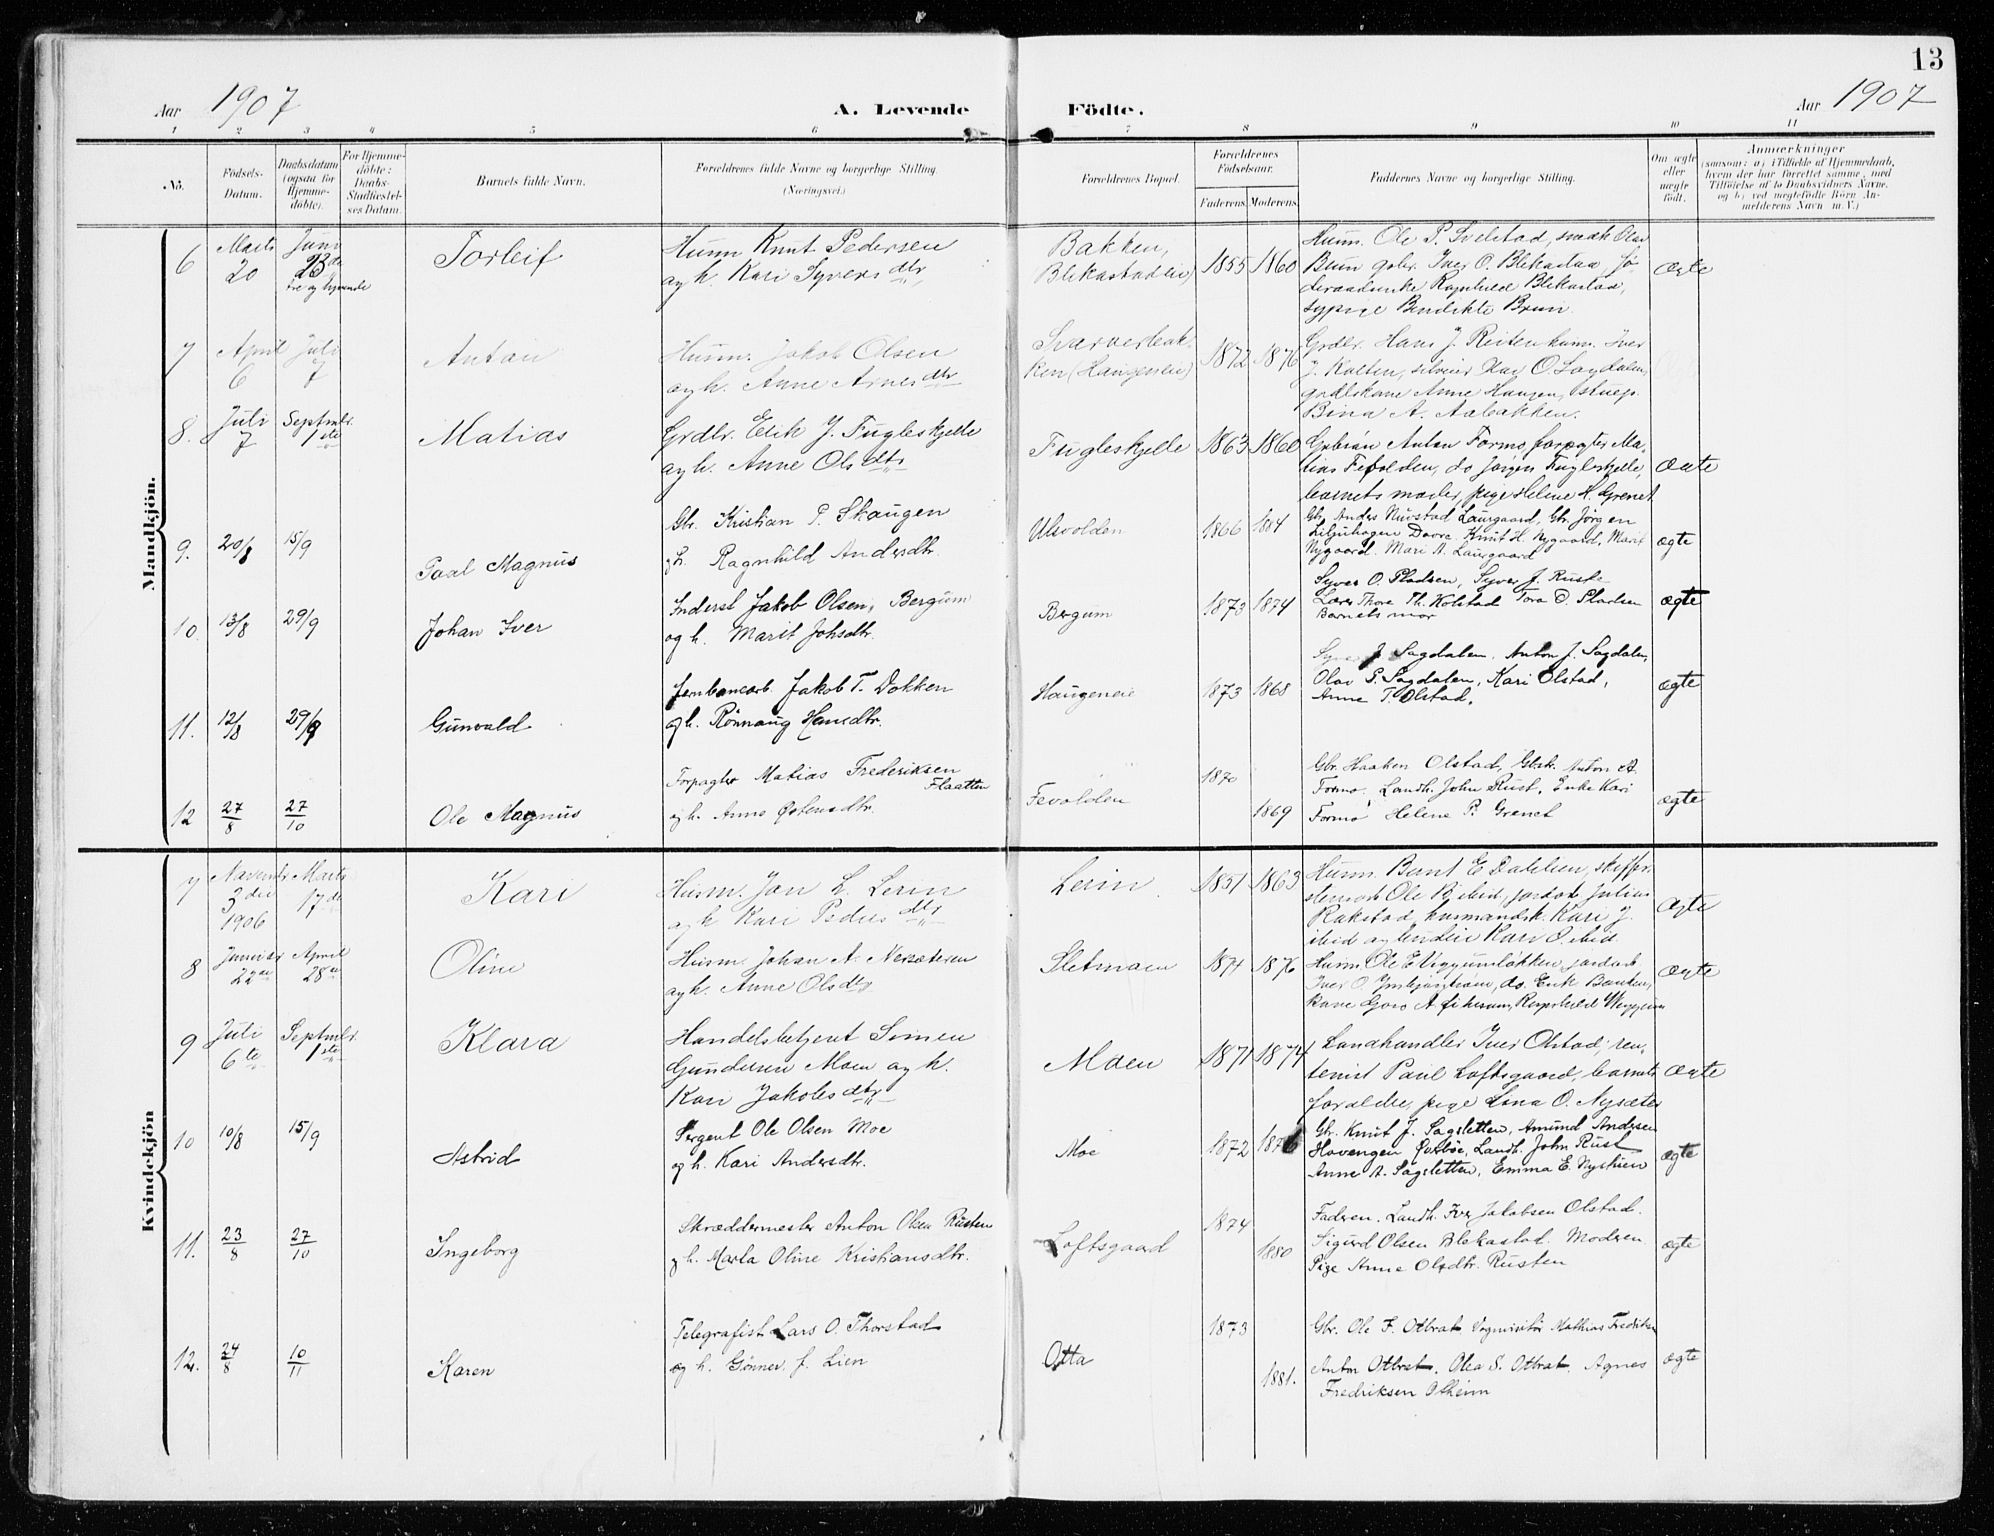 13
Aar 1907 A. Levende Födte. Aar 1907
1 2 3 4 5 6 7 8 9 10 11
No.
Födsels-Datum.
Daabsdatum (ogsaa for Hjemme-döbte).
For Hjemme-döbte: Daabs-Stadfæstel-ses Datum.
Barnets fulde Navn.
Forældrenes fulde Navne og borgerlige Stilling.
(Næringsvei.)
Forældrenes Bopæl.
Forældrenes Födselsaar.
Faderens. Moderens.
Faddernes Navne og borgerlige Stilling.
Om ægte eller uægte födt.
Anmærkninger
(saasom: a) i Tilfælde af Hjemmedaab,
hvem der har forrettet samme, med
Tilföielse af to Daabsvidners Navne,
og b) ved uægtefödte Börn An-
melderens Navn m. V.)
Mandkjön.
6 Marts 20 Juni 23de tre og tyvende Torleif
Husm Knut Pedersen
og h. Kari Syversdtr
Bakken,
Blekastadeie) 1855 1860
Husm. Ole P. Svelstad, smak Olav
Bruun gbr. Iver O. Blekastad,
Ragnhild Blekastad,
sypige Bendikte Bruun
ægte
7 April 6 Juli 7 Anton
Husm. Jakob Olsen
og h. Anne Arnesdtr
Svarverbak-
ken (Haugeneie) 1872 1876
Grdbr. Hans J. Reiten husm. Iver
J. Kolten, O. Sagdalen,
grdbkone Anne Haugen, stuep.
Bina A. Aabakken.
8. Juli 7 Septmbr. 1ste Matias
Grdbr. Erik J. Fugleskjelle
og h. Anne Olsdtr
Fugleskjelle 1863 1860
Gbrsøn Anton Formo, forpagter Ma-
tias Fevolden, do Jørgen Fugleskjelle,
barnets moder, pige Helene H. Grenet
ægte
9. 20/8 15/9 Paal Magnus
Gbr. Kristian P. Skaugen
og h. Ragnhild Andersdtr.
Ulvolden 1866 1884
Gbr. Anders Nustad Laurgaard, Gbr. Jørgen
Liljuhagen Dovre Knut H. Nygaard, Marit
Nygaard. Mari A. Laurgaard
ægte
10. 13/8 29/9 Johan Iver
Inderst Jakob Olsen, Bergum
og h. Marit Johsdtr.
Bergum 1873 1874
Syver O. Pladsen, Syver J. Ruste
Lærer Thore Th. Kolstad Tora O. Pladsen
Barnets mor
ægte
11. 12/8 29/9 Gunvald
Jernbanearb. Jakob T. Dokken
og h. Rønnaug Hansdtr.
Haugeneie 1873 1868
Syver J. Sagdalen, Anton J. Sagdalen,
Olav P. Sagdalen, Kari Olstad,
Anne T. Olstad.
ægte
12 27/8 27/10 Ole Magnus
Forpagter Matias Frederiksen
Flaatten
og h. Anne Østensdtr.
Fevolden 1870 1869
Gbr. Haaken Olstad, Gbsk. Anton A.
Formo. Landh. John Rust, Enke Kari
Formo Helene P. Grenet
ægte
Kvindekjön
7 Novembr 3die 1906 Marts 17de Kari
Husm. Jon L. Lerin
og h Kari Pedersdtr
Lerin 1851 1863
Husm. Bernt E Dahlen,
Ole Bjebid, jordarb Julius
Rakstad, husmandsk. Kari J.
ibid og Kari O. ibid.
ægte
8 Januar 22de April 28de Oline
Husm. Johan A. Nersæteren
og h. Anne Olsdtr
Sletmoen 1874 1876
Husm. Ole E Viggumsløkken, jordarb
Iver O., do. Erik Bakken,
kone Goro A, Ragnhild Viggum
ægte
9 Juli 6te Septmbr. 1ste Klara
Handelsbetjent Simen
Gundersen Moen og h.
Kari Jakobsdtr
Moen 1871 1874
Landhandler Iver Olstad, ren-
tenist Paul Loftsgaard, barnets
forældre, pige Lina O. Nysæter
ægte
10 10/8 15/9 Astrid
Sergent Ole Olsen Moe
og h. Kari Andersdtr.
Moe 1872 1876
Gbr. Knut J. Sagsletten, Amund Andersen
Hovengen, Landh. John Rust
Anne A. Sagsletten, Emma E. Nyhuen
ægte
11. 23/8 27/10 Ingeborg
Skræddermester Anton Olsen Rusten
og h. Marta Oline Kristiansdtr.
Loftsgaard 1874 1880
Faderen. Landh. Iver Jakobsen Olstad.
Sigurd Olsen Blekastad. Modren
Pige Anne Olsdtr. Rusten
ægte
12. 24/8 10/11 Karen
Telegrafist Lars O. Thorstad
og h. Gønner f. Lien
Otta 1873 1881.
Gbr. Ole F. Ottbrat Vognvisitør Mathias Fredriksen
Anton Ottbrat. Olea S. Ottbrat, Agnes
Fredriksen Olheim
ægte